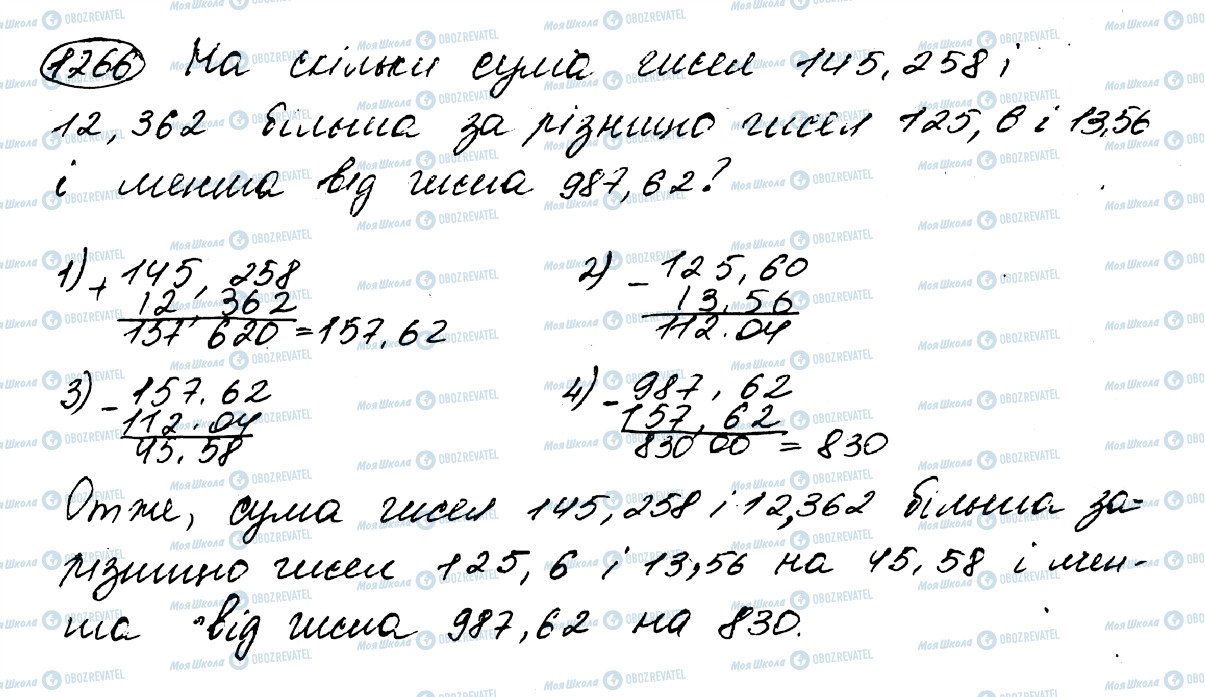 1266 На скільки сума чисел 145,258 і
12,362 більша за різницю чисел 125,6 і 13,56
і менша від числа 987,62?
1) + 145,258 2) - 125,60
12,362 13,56
157,620 = 157,62 112.04
3) - 157.62 4) - 987,62
112.04 157,62
45.58 830 00 = 830
Отже, сума чисел 145,258 і 12,362 більша за-
різницю чисел 125,6 і 13,56 на 45,58 і мен-
ша від числа 987,62 на 830.
Моя Школа OBOZREVATEL